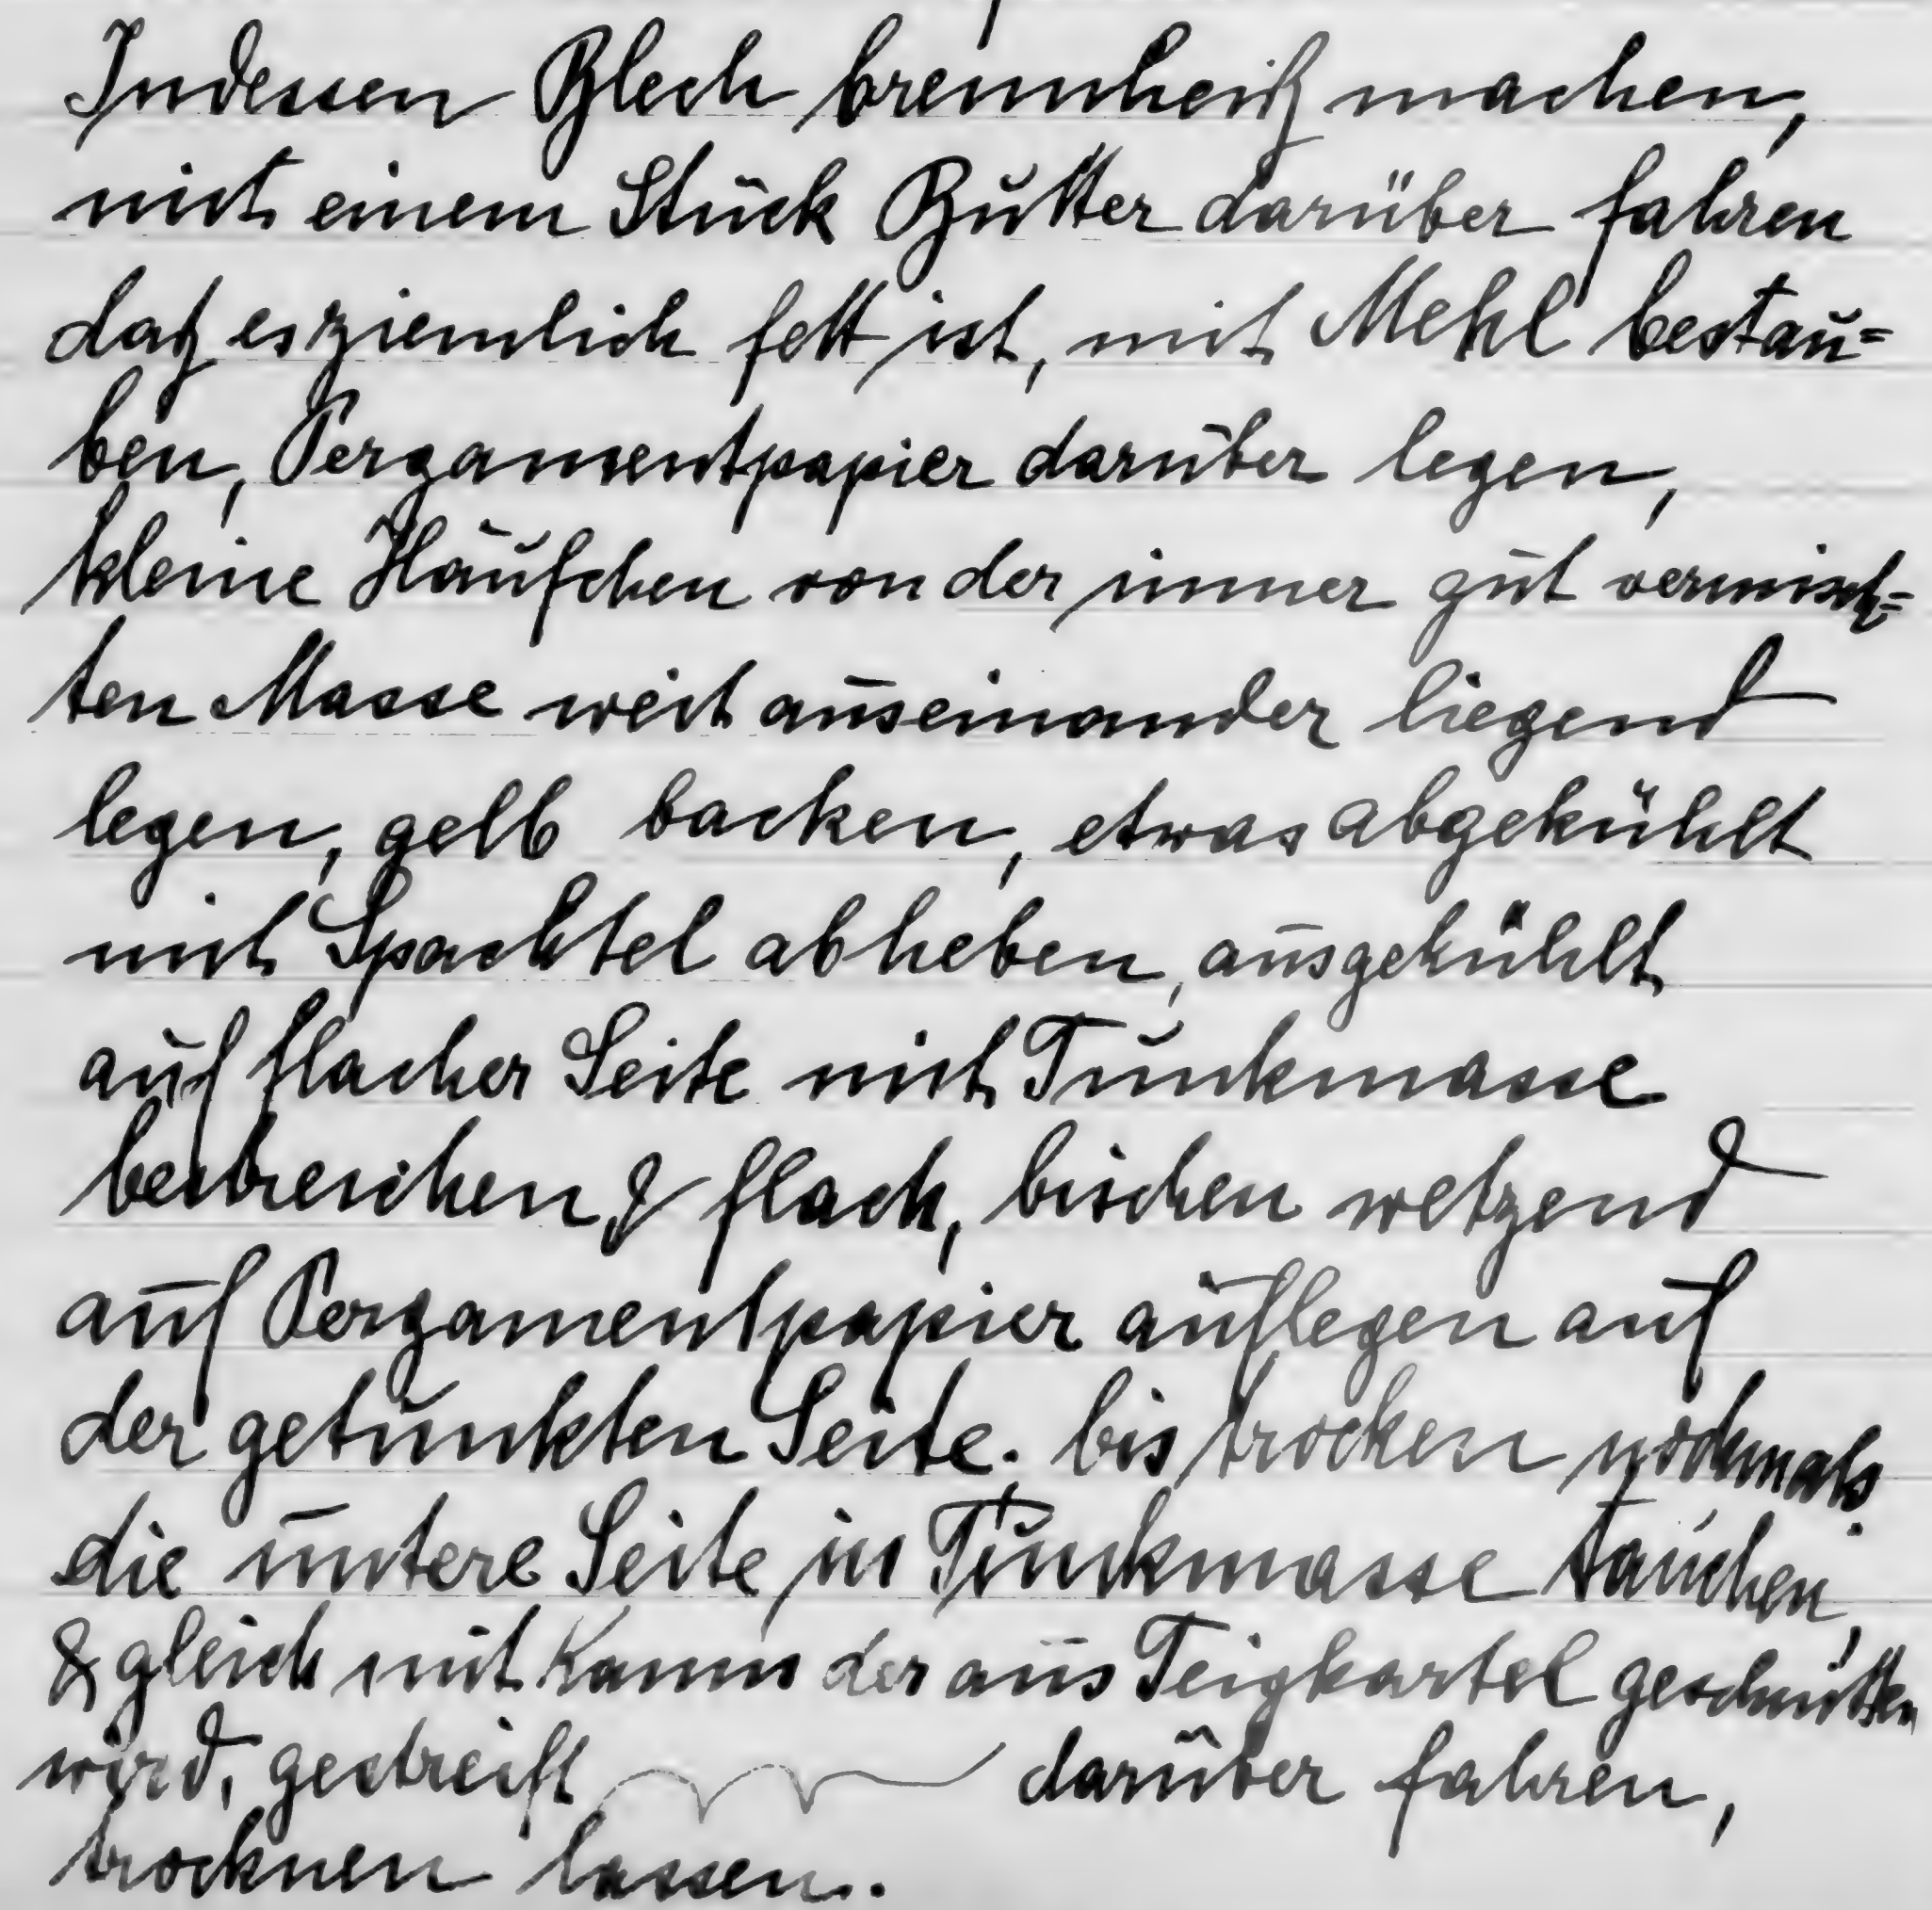 Indessen Blech brennheiß machen,
mit einem Stück Butter darüber fahren
daß es ziemlich fett ist, mit Mehl bestau=
ben, Pergamentpapier darüber legen,
kleine Häufchen von der immer gut vermisch=
ten Masse weit auseinander liegend
legen, gelb backen, etwas abgekühlt
mit Spachtel abheben, ausgekühlt
auf flacher Seite mit Tunkmasse
bestreichen & flach, bischen wetzend
auf Pergamentpapier auflegen auf
der getunkten Seite. bis trocken nochmals
die untere Seite in Tunkmasse tauchen,
& gleich mit Kamm der aus Teigkartel geschnitten
wird, gestreift darüber fahren,
trocknen lassen.